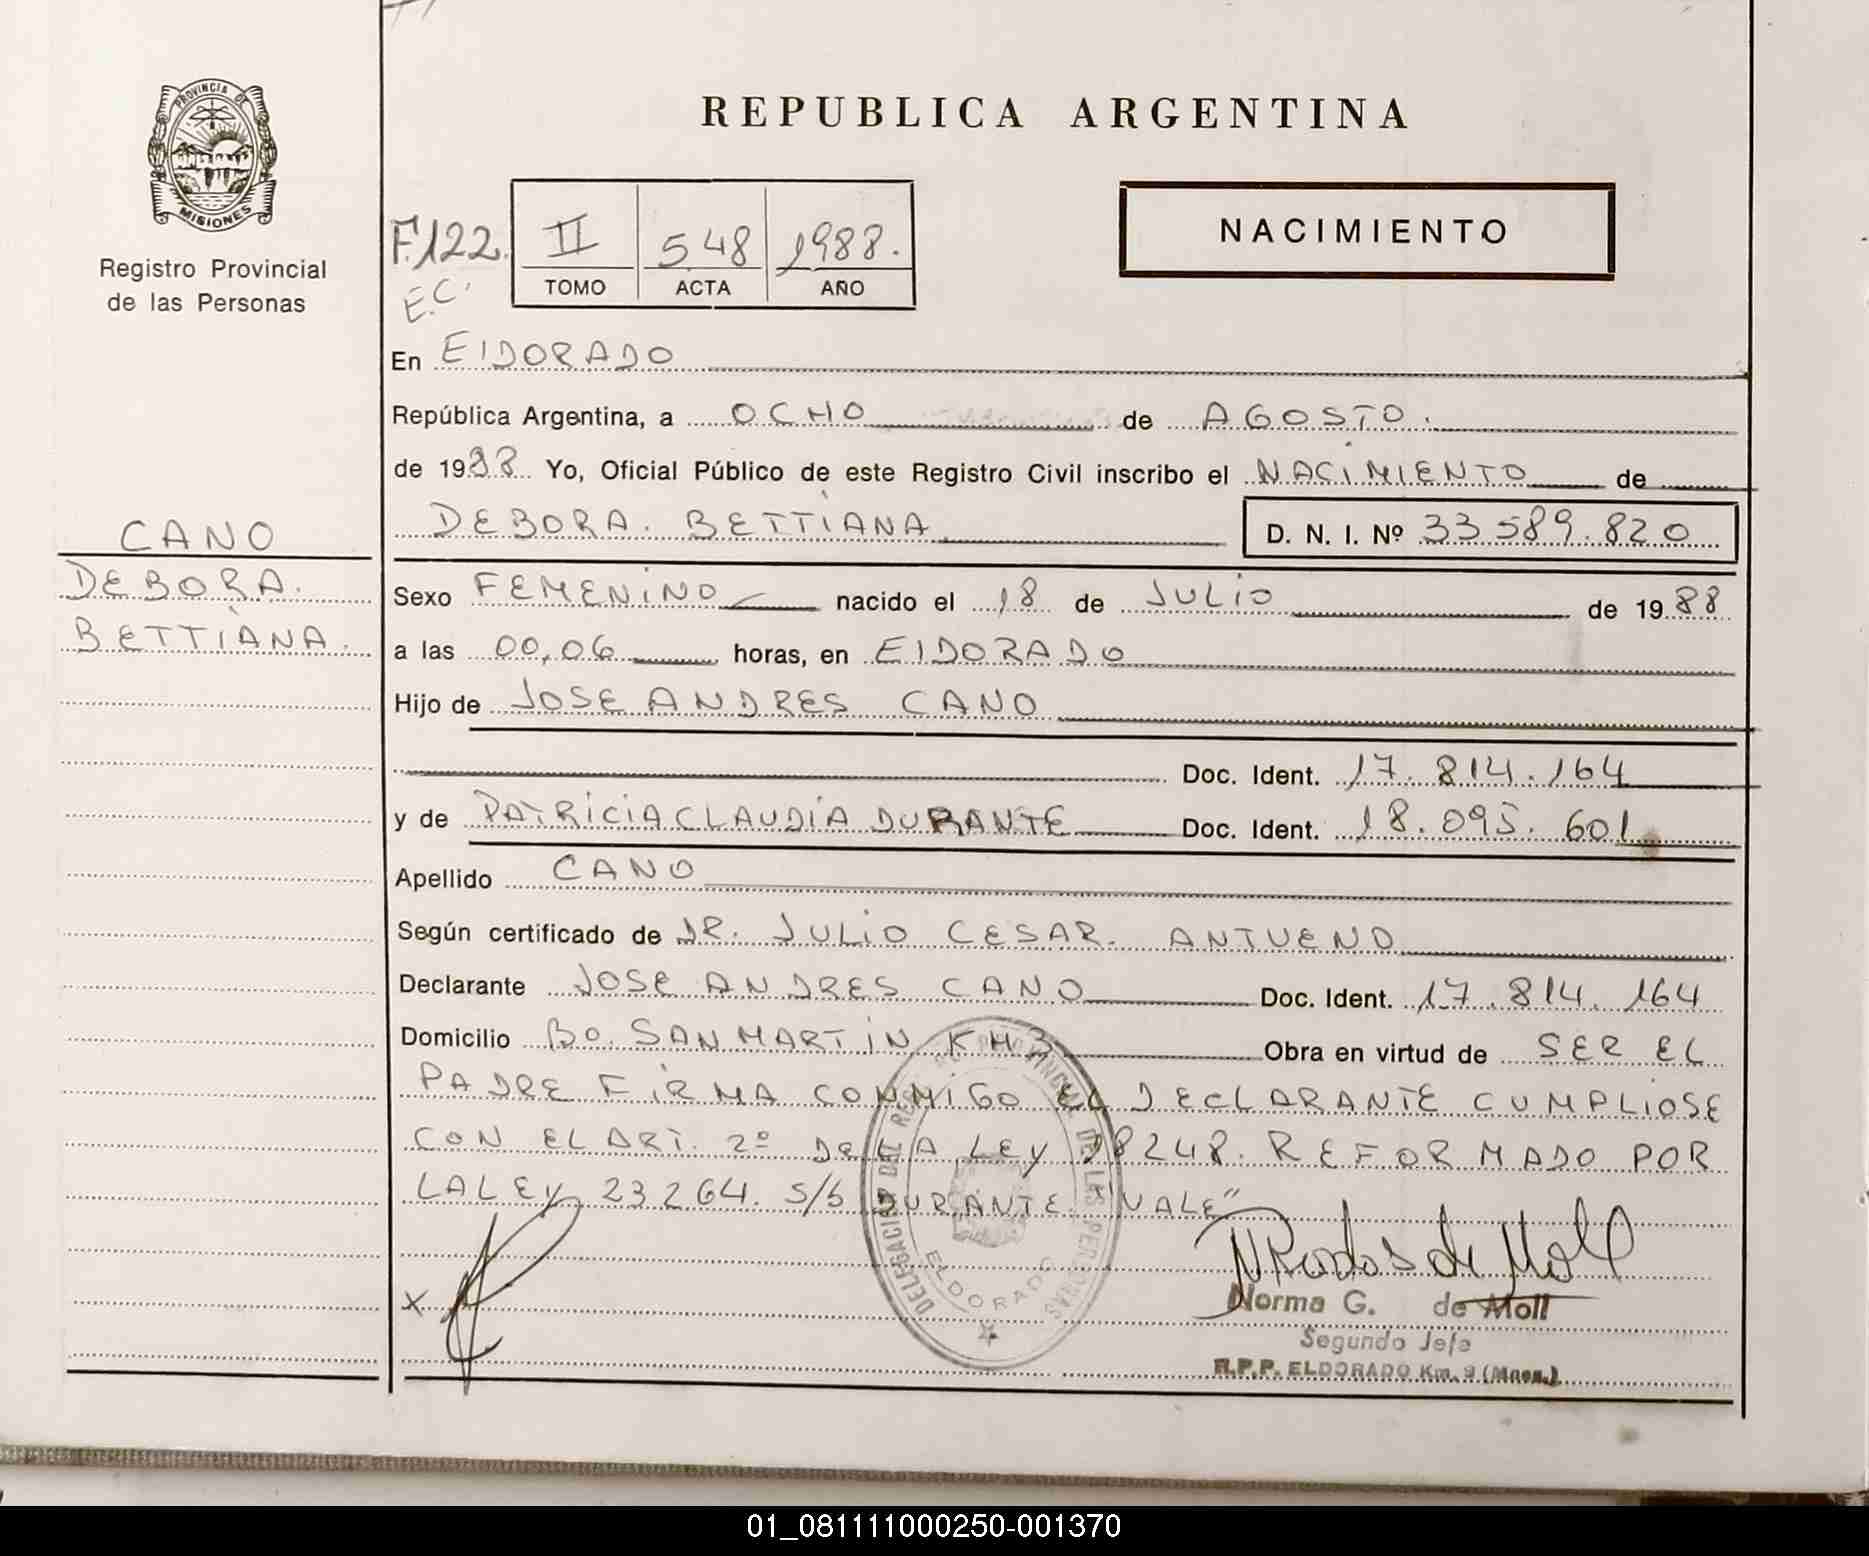 PROVINCIA DE
MISIONES
Registro Provincial
de las Personas
REPUBLICA ARGENTINA
NACIMIENTO
F.122.
E.C.
II 548 1988.
TOMO ACTA AÑO
En ElDORADO
República Argentina, a OCHO de AGOSTO.
de 1988. Yo, Oficial Público de este Registro Civil inscribo el NACIMIENTO de
DEBORA. BETTIANA D. N. I. Nº 33589.820
CANO
DEBORA.
BETTIANA.
Sexo FEMENINO nacido el 18 de JULIO de 1988
a las 00,06 horas, en ElDORADO
Hijo de JOSE ANDRES CANO
Doc. Ident. 17.814.164
y de PATRICIA CLAUDIA DURANTE Doc. Ident. 18.095.601
Apellido CANO
Según certificado de DR. JULIO CESAR. ANTUENO
Declarante JOSE ANDRES CANO Doc. Ident. 17.814.164
Domicilio Bo. SAN MARTIN KM 3 Obra en virtud de SER EL
PADRE FIRMA CONMIGO EL DECLARANTE CUMPLIOSE
CON EL ART. 2º DE LA LEY 18248. REFORMADO POR
LA LEY 23264. S/b DURANTE "VALE"
DELEGACION DEL REG. PROVINCIAL DE LAS PERSONAS
ELDORADO
X
Norma G. de Moll
Segundo Jefe
R.P.P. ELDORADO Km. 9 (Mnes.)
01_081111000250-001370